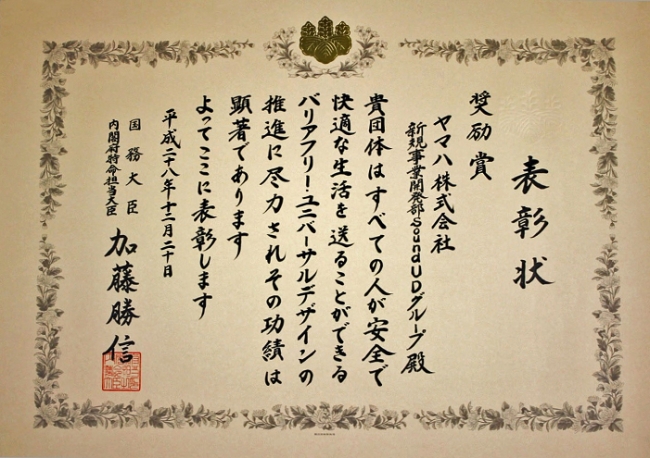 表彰状
奨励賞
ヤマハ株式会社
新規事業開発部SoundUDグループ 殿
貴団体はすべての人が安全で
快適な生活を送ることができる
バリアフリー・ユニバーサルデザインの
推進に尽力されその功績は
顕著であります
よってここに表彰します
平成二十八年十二月二十日
国務大臣
内閣府特命担当大臣
加藤勝信